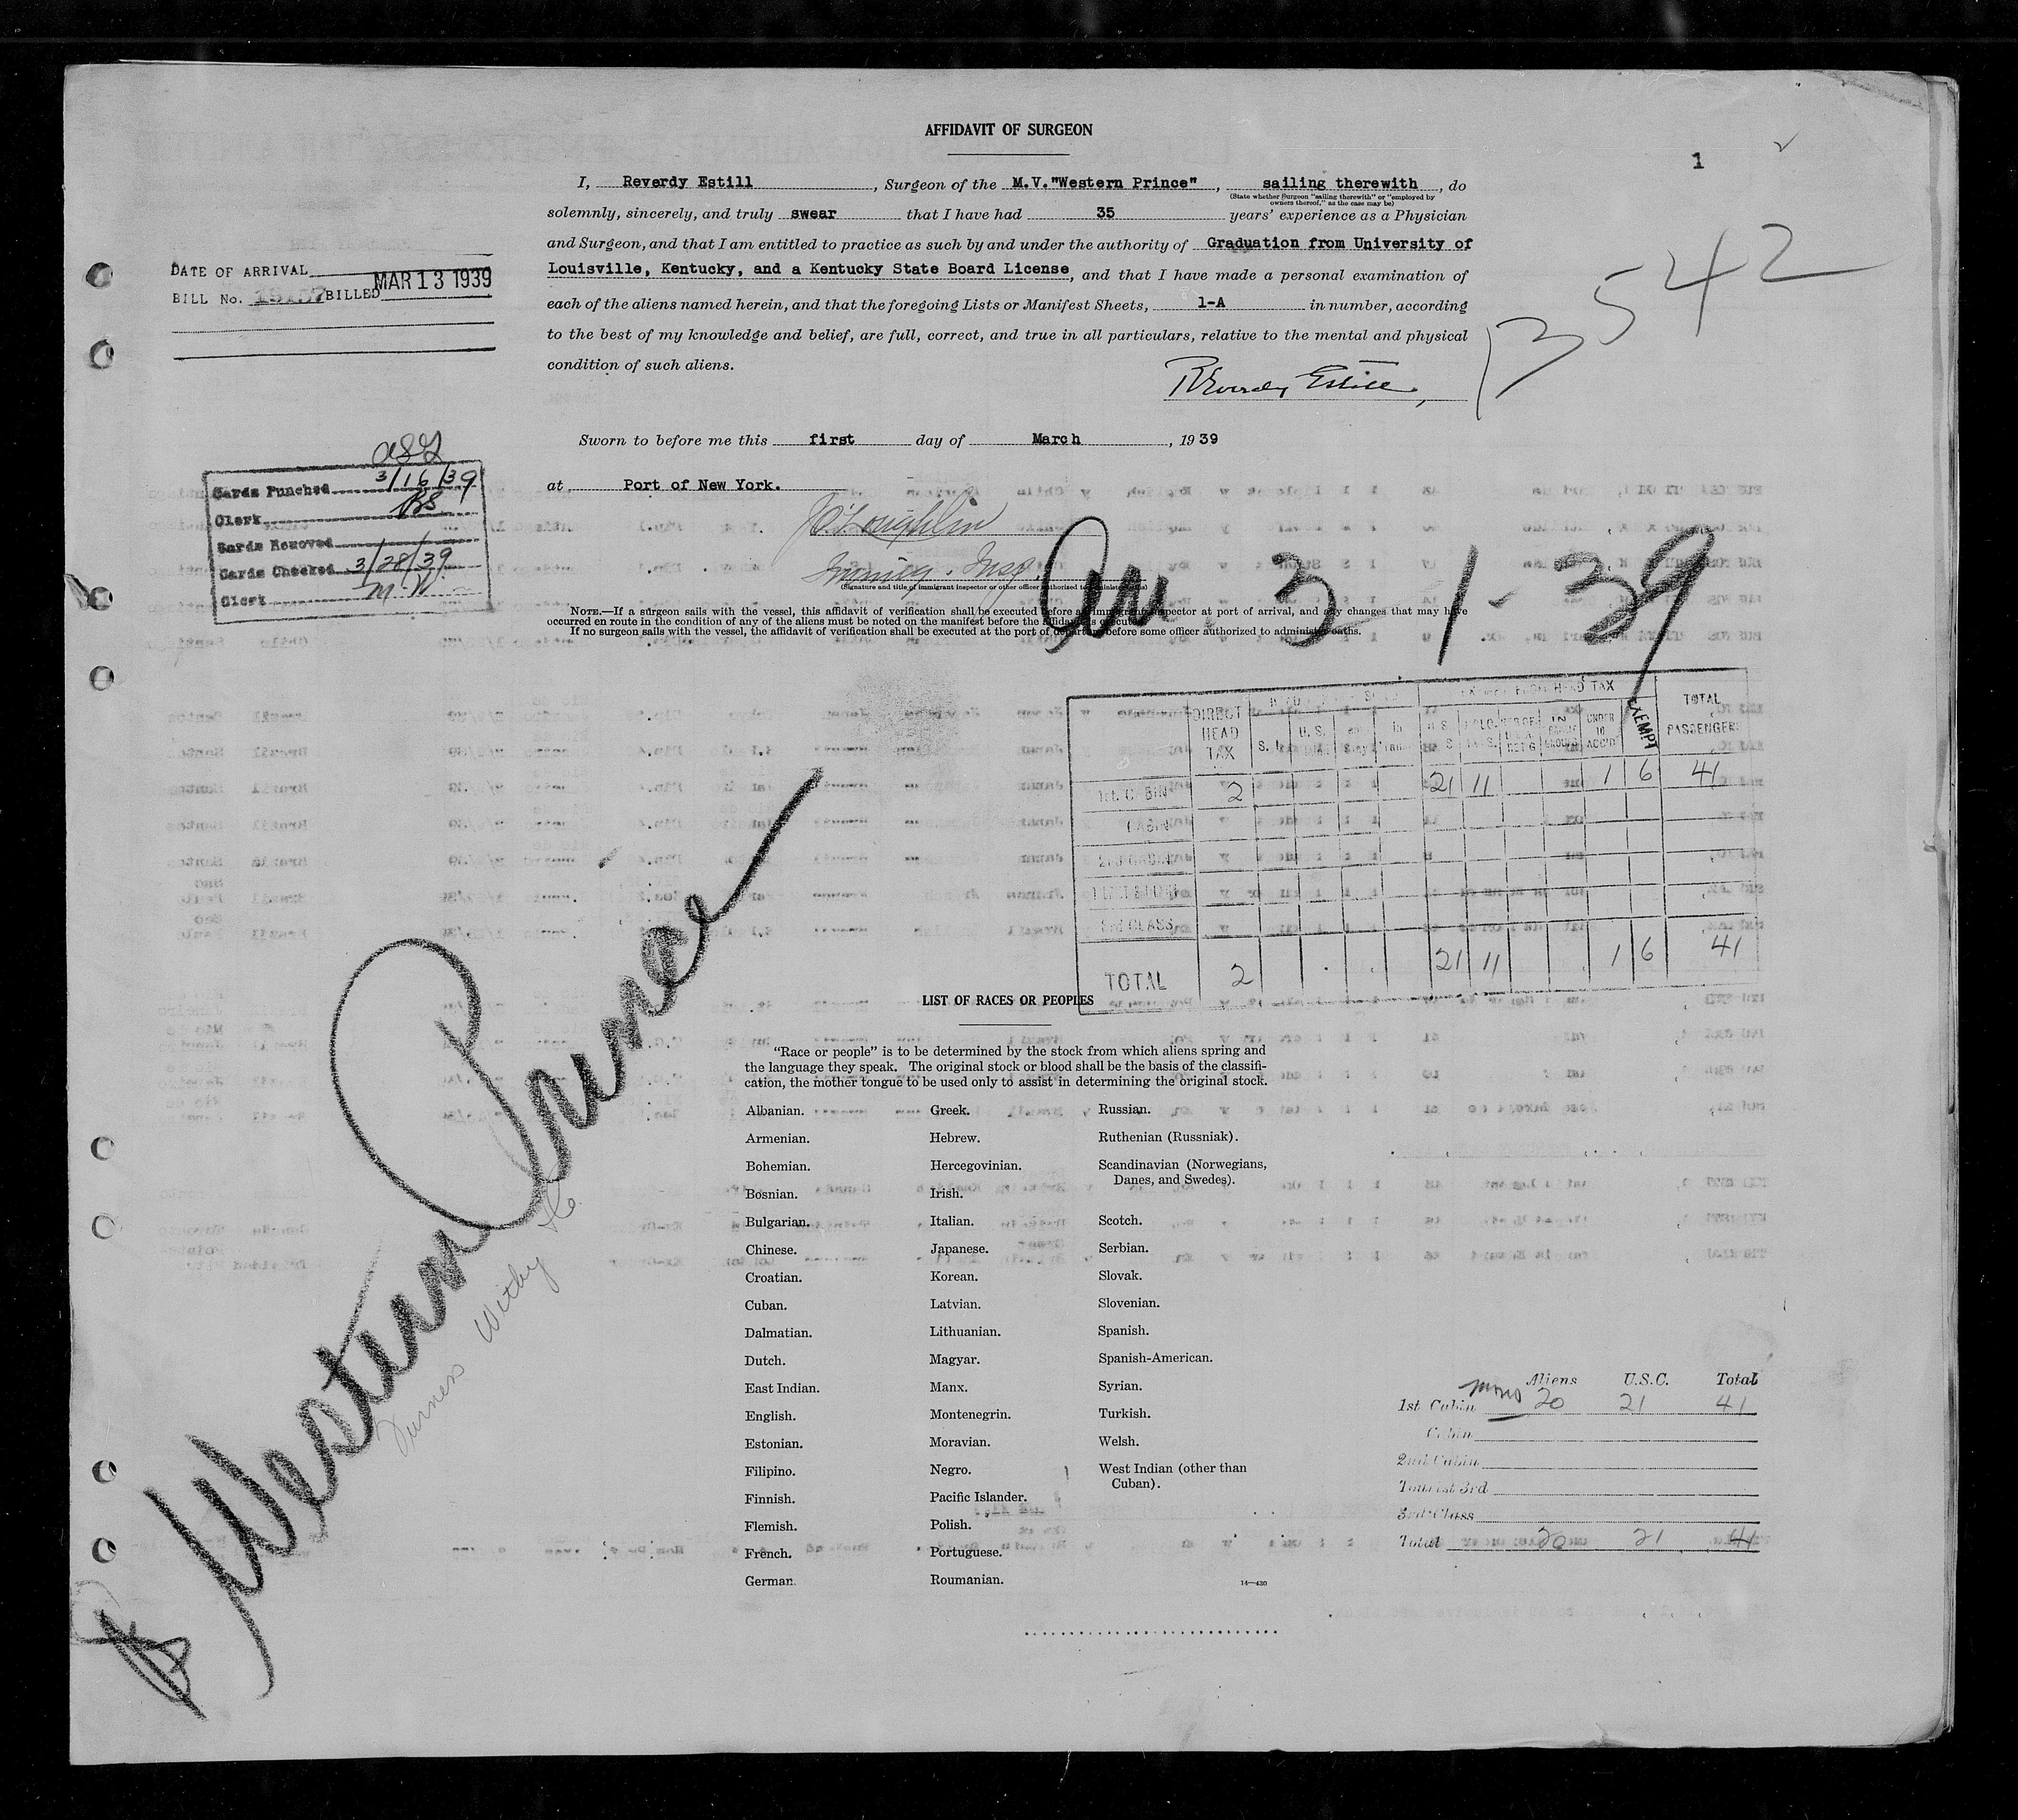 AFFIDAVIT OF SURGEON
1
I, Reverdy Estill, Surgeon of the M.V."Western Prince", sailing therewith, do
(State whether Surgeon "sailing therewith" or "employed by
owners thereof," as the case may be)
solemnly, sincerely, and truly swear that I have had 35 years' experience as a Physician
and Surgeon, and that I am entitled to practice as such by and under the authority of Graduation from University of
Louisville, Kentucky, and a Kentucky State Board License, and that I have made a personal examination of
each of the aliens named herein, and that the foregoing Lists or Manifest Sheets, 1-A in number, according
to the best of my knowledge and belief, are full, correct, and true in all particulars, relative to the mental and physical
condition of such aliens.
Reverdy Estill
13542
DATE OF ARRIVAL
BILL No. BILLED MAR 13 1939
Sworn to before me this first day of March, 1939
at Port of New York.
J O'Loughlin
Immig. Insp.
(Signature and title of immigrant inspector or other officer authorized to administer oaths)
Cards Punched 3/16/39
Clerk
Cards Removed
Cards Checked 3/28/39
Clerk M.W.
Arr 3-1-39
NOTE.—If a surgeon sails with the vessel, this affidavit of verification shall be executed before an immigrant inspector at port of arrival, and any changes that may have
occurred en route in the condition of any of the aliens must be noted on the manifest before the affidavit is executed.
If no surgeon sails with the vessel, the affidavit of verification shall be executed at the port of departure before some officer authorized to administer oaths.
DIRECT HEAD TAX
EXEMPT
TOTAL PASSENGERS
1st CABIN 2 21 11 1 6 41
CABIN
2nd CABIN
3rd CLASS
TOTAL 2 21 11 1 6 41
Western Prince
Furness Withy Co
LIST OF RACES OR PEOPLES
"Race or people" is to be determined by the stock from which aliens spring and
the language they speak. The original stock or blood shall be the basis of the classifi-
cation, the mother tongue to be used only to assist in determining the original stock.
Albanian. Greek. Russian.
Armenian. Hebrew. Ruthenian (Russniak).
Bohemian. Hercegovinian. Scandinavian (Norwegians,
Danes, and Swedes).
Bosnian. Irish.
Bulgarian. Italian. Scotch.
Chinese. Japanese. Serbian.
Croatian. Korean. Slovak.
Cuban. Latvian. Slovenian.
Dalmatian. Lithuanian. Spanish.
Dutch. Magyar. Spanish-American.
East Indian. Manx. Syrian.
English. Montenegrin. Turkish.
Estonian. Moravian. Welsh.
Filipino. Negro. West Indian (other than
Cuban).
Finnish. Pacific Islander.
Flemish. Polish.
French. Portuguese.
German. Roumanian.
14—430
Aliens U.S.C. Total
1st Cabin 20 21 41
Cabin
2nd Cabin
Tourist 3rd
3rd Class
Total 20 21 41